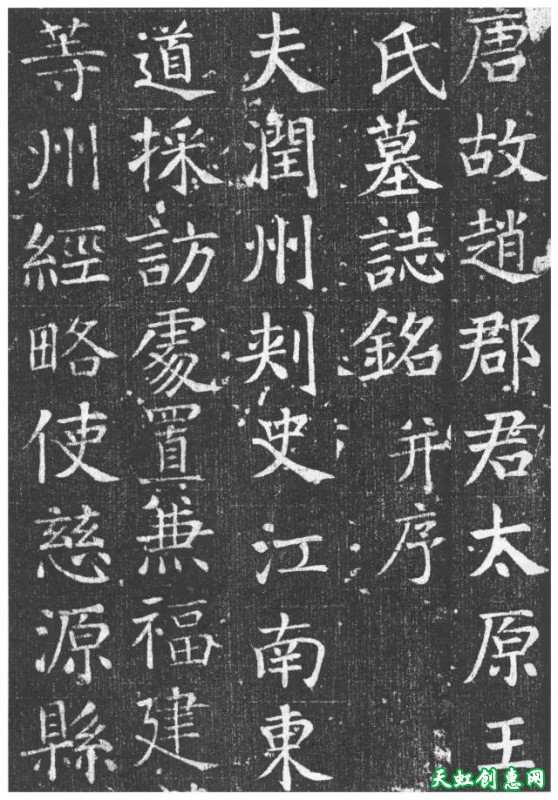 唐故趙郡君太原王
氏墓誌銘并序
夫潤州刾史江南東
道採訪處置兼福建
等州經略使慈源縣
天虹创惠网